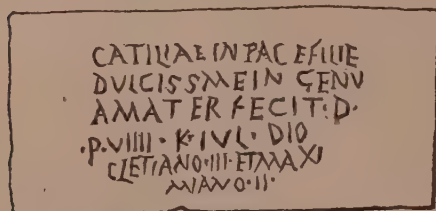 CATILIAE IN PACE FILIE
DVLCISSME INGENV
A MATER FECIT : D ·
· P · VIIII · K · IVL · DIO
CLETIANO · III · ET MAXI
MIANO · II ·